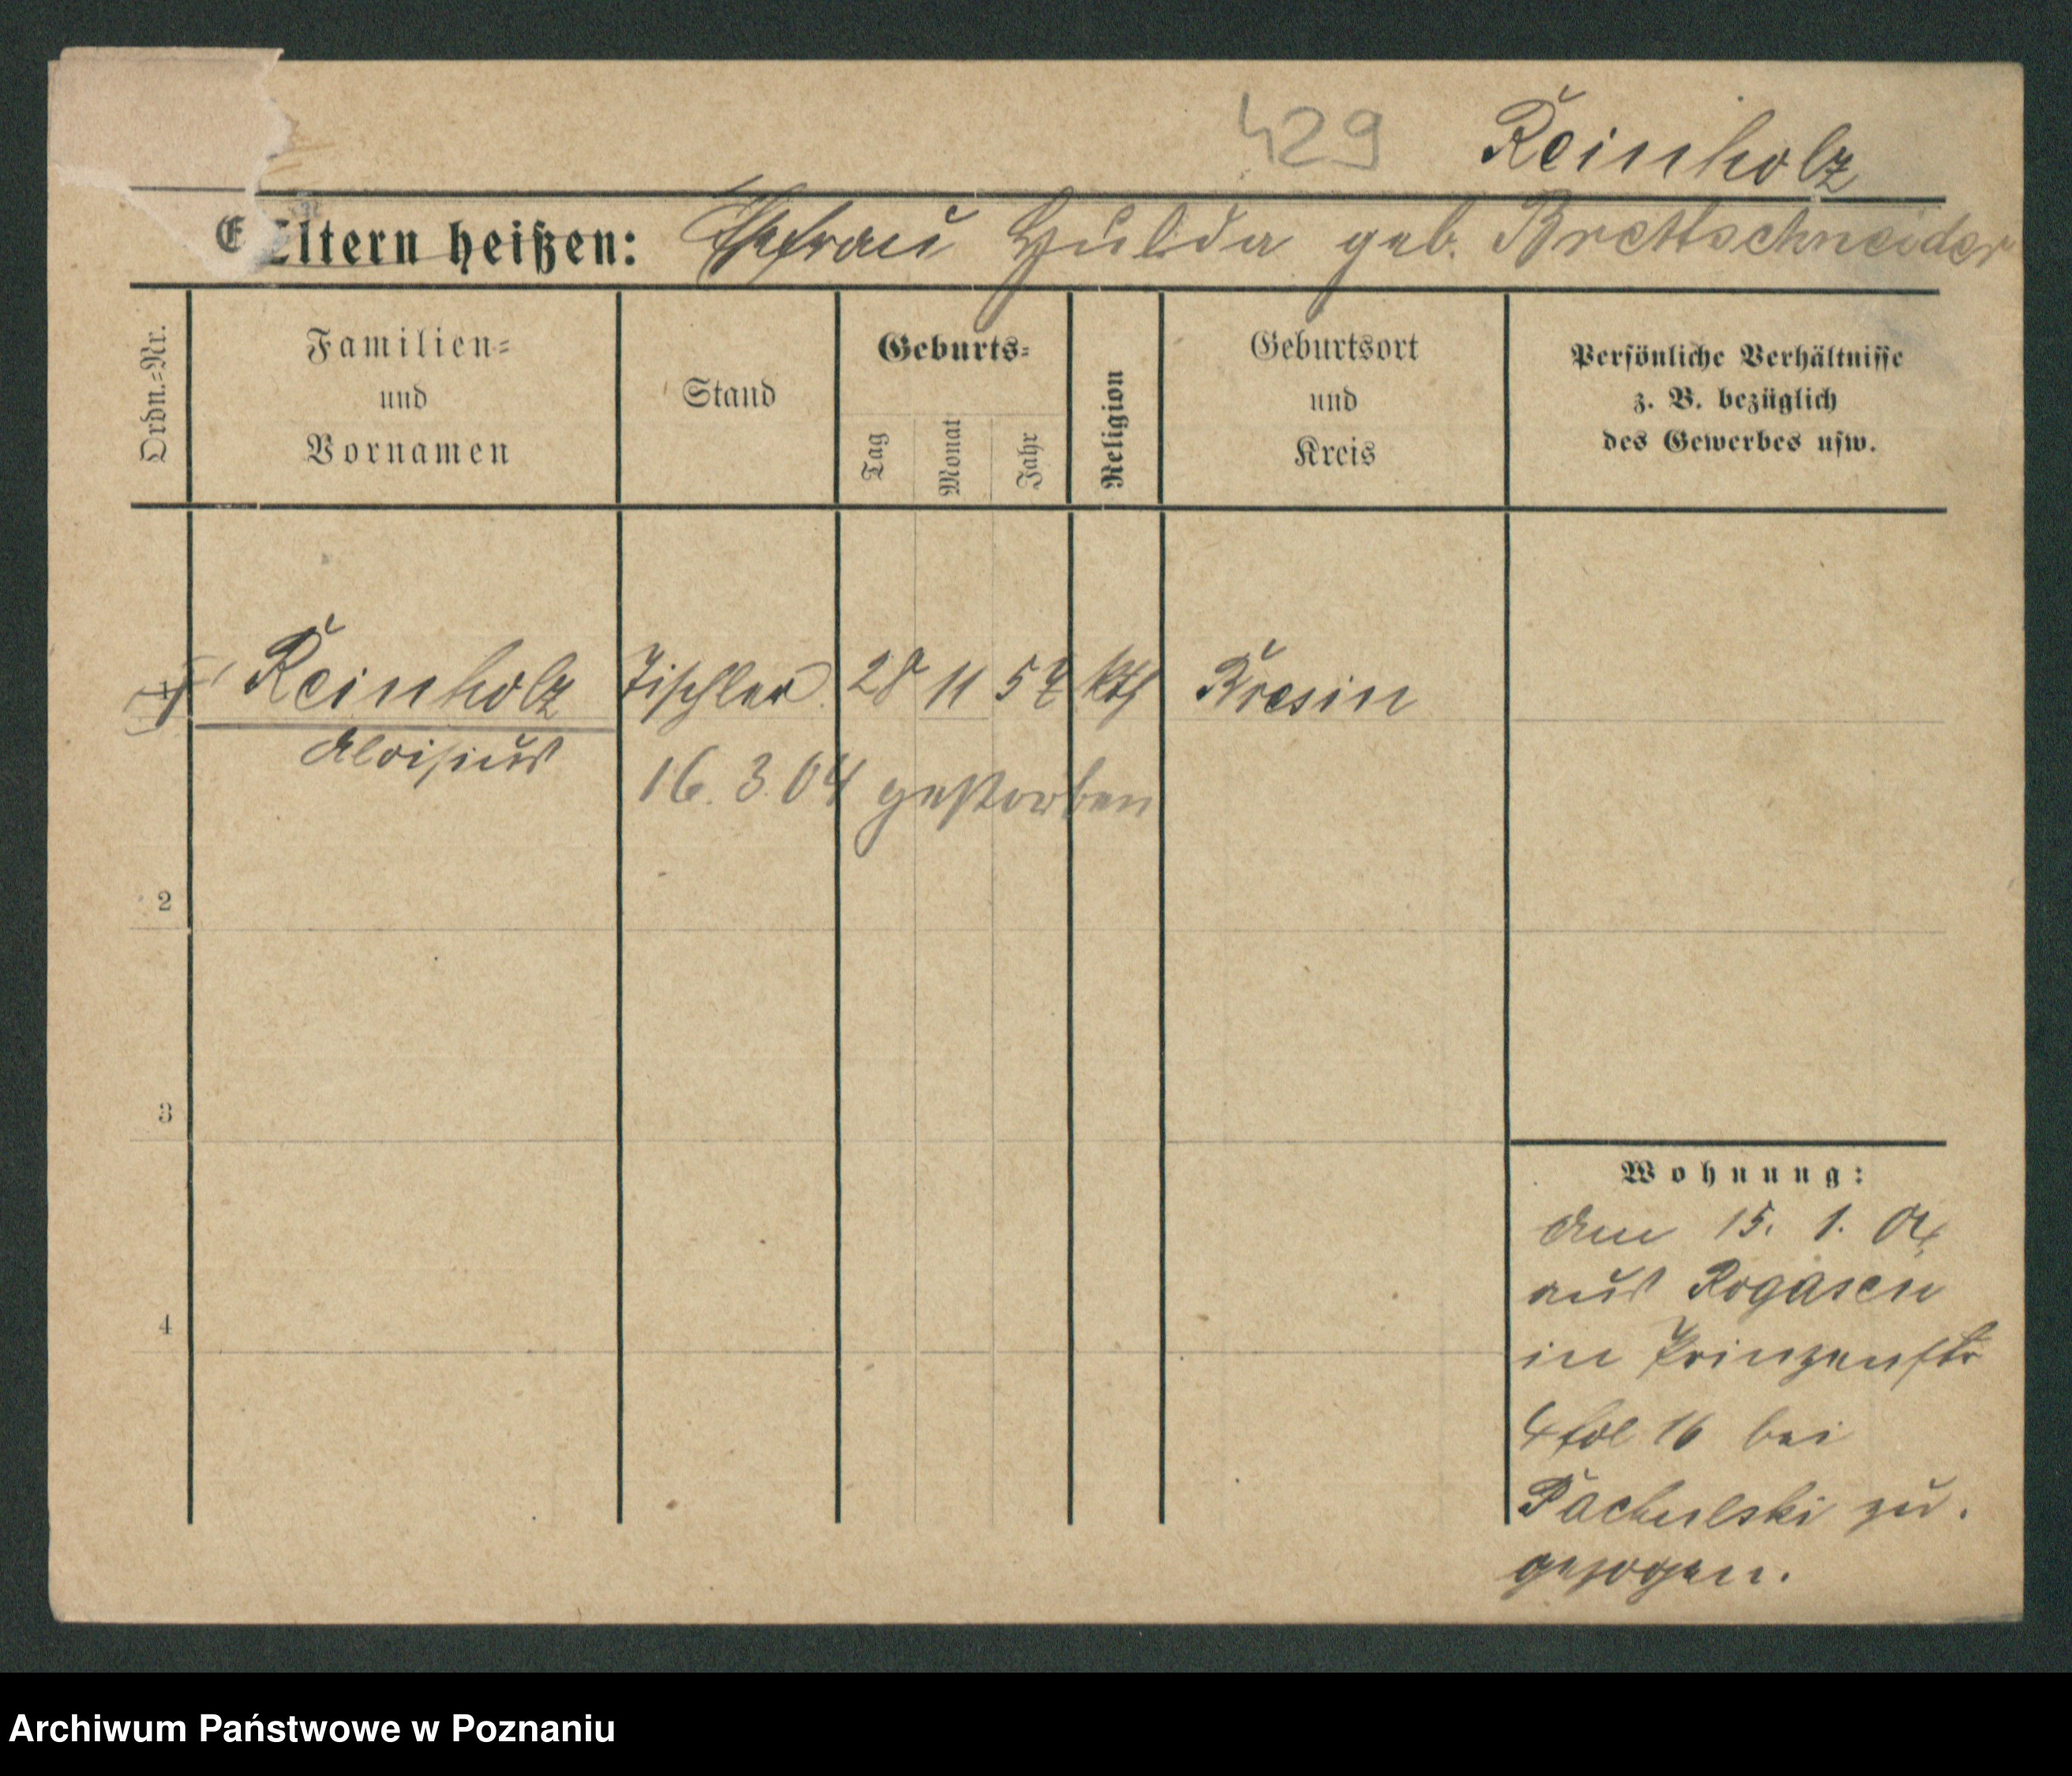 429 Reinholz
Eltern heißen: Ehefrau Hulda geb. Brettschneider
Ordn.=Nr.
Familien=
und
Vornamen
Stand
Geburts=
Tag
Monat
Jahr
Religion
Geburtsort
und
Kreis
Persönliche Verhältnisse
z. B. bezüglich
des Gewerbes usw.
1 Reinholz Tischler 28 11 57 kth Bresin
Aloisius
16. 3. 04 gestorben
2
3
4
Wohnung:
Am 15. 1. 04
aus Rogasen
in Prinzenstr
4 fol 16 bei
Pachulski zu.
gezogen.
Archiwum Państwowe w Poznaniu